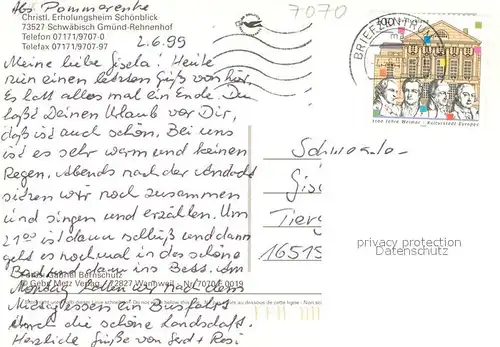 Abs. Pommerenke
Christl. Erholungsheim Schönblick
73527 Schwäbisch Gmünd-Rehnenhof
Telefon 07171/9707-0
Telefax 07171/9707-97
2.6.99
Meine liebe Gisela! Heute
nun einen letzten Gruß von hier.
Es hat alles mal ein Ende. Du
hast Deinen Urlaub vor Dir,
das ist auch schön. Bei uns
ist es sehr warm und keinen
Regen. Abends nach der Andacht
sitzen wir noch zusammen
und singen und erzählen. Um
21.00 ist dann schluß und dann
geht es nochmal in das schöne
Bad und dann ins Bett. Am
Montag hatten wir nach dem
Mittagessen ein Busfahrt
durch die schöne Landschaft.
Herzliche Grüße von Gerd + Rosi
Gebr. Metz Verlag
7070
BRIEFZENTRUM
1100 Jahre Weimar · Kulturstadt Europas
Gis
Tierg
16515
privacy protection
Datenschutz